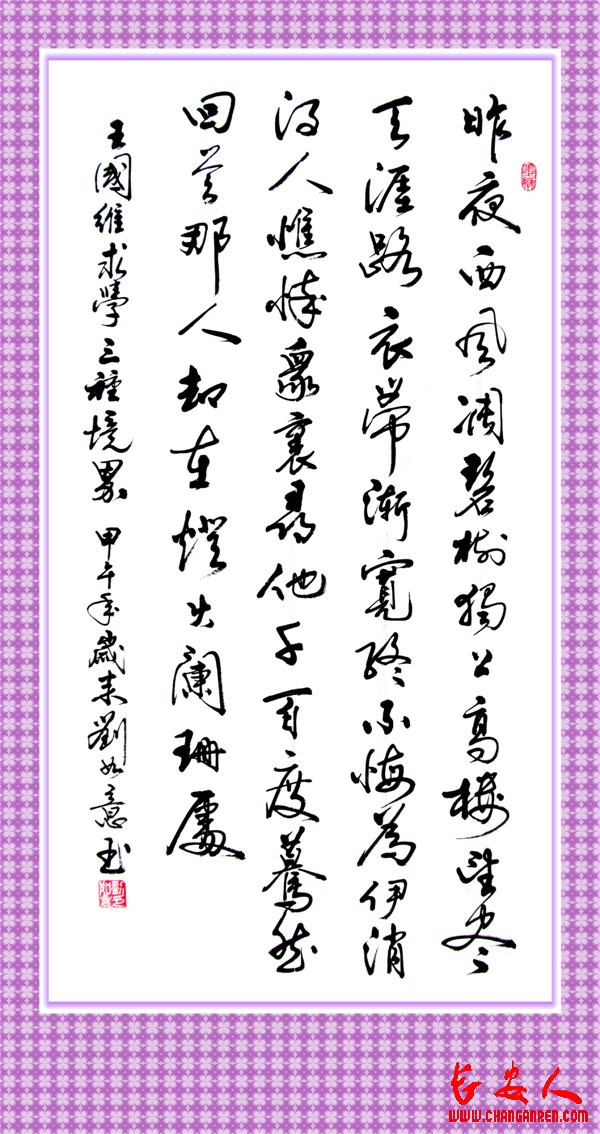 昨夜西風凋碧樹獨上高樓望尽
天涯路衣帶漸寬終不悔為伊消
得人憔悴眾裏尋他千百度驀然
回首那人却在燈火闌珊處
王國維求學三種境界 甲午年歲末劉如意书
长安人
WWW.CHANGANREN.COM